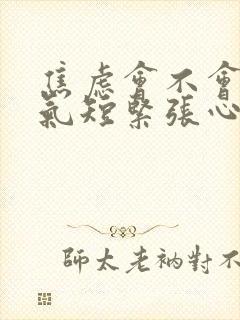 焦虑會不會
氣短緊張心
師太老衲對不